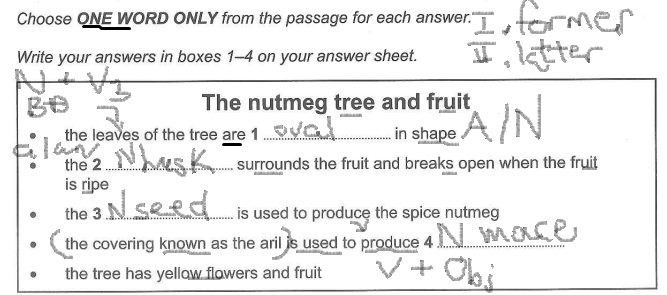 Choose ONE WORD ONLY from the passage for each answer. I, former
Write your answers in boxes 1–4 on your answer sheet. II, letter
N + V3
The nutmeg tree and fruit
• the leaves of the tree are 1 oval in shape A/N
• the 2 N husk surrounds the fruit and breaks open when the fruit
is ripe
• the 3 N seed is used to produce the spice nutmeg
• (the covering known as the aril) is used to produce 4 N mace
• the tree has yellow flowers and fruit V + Obj